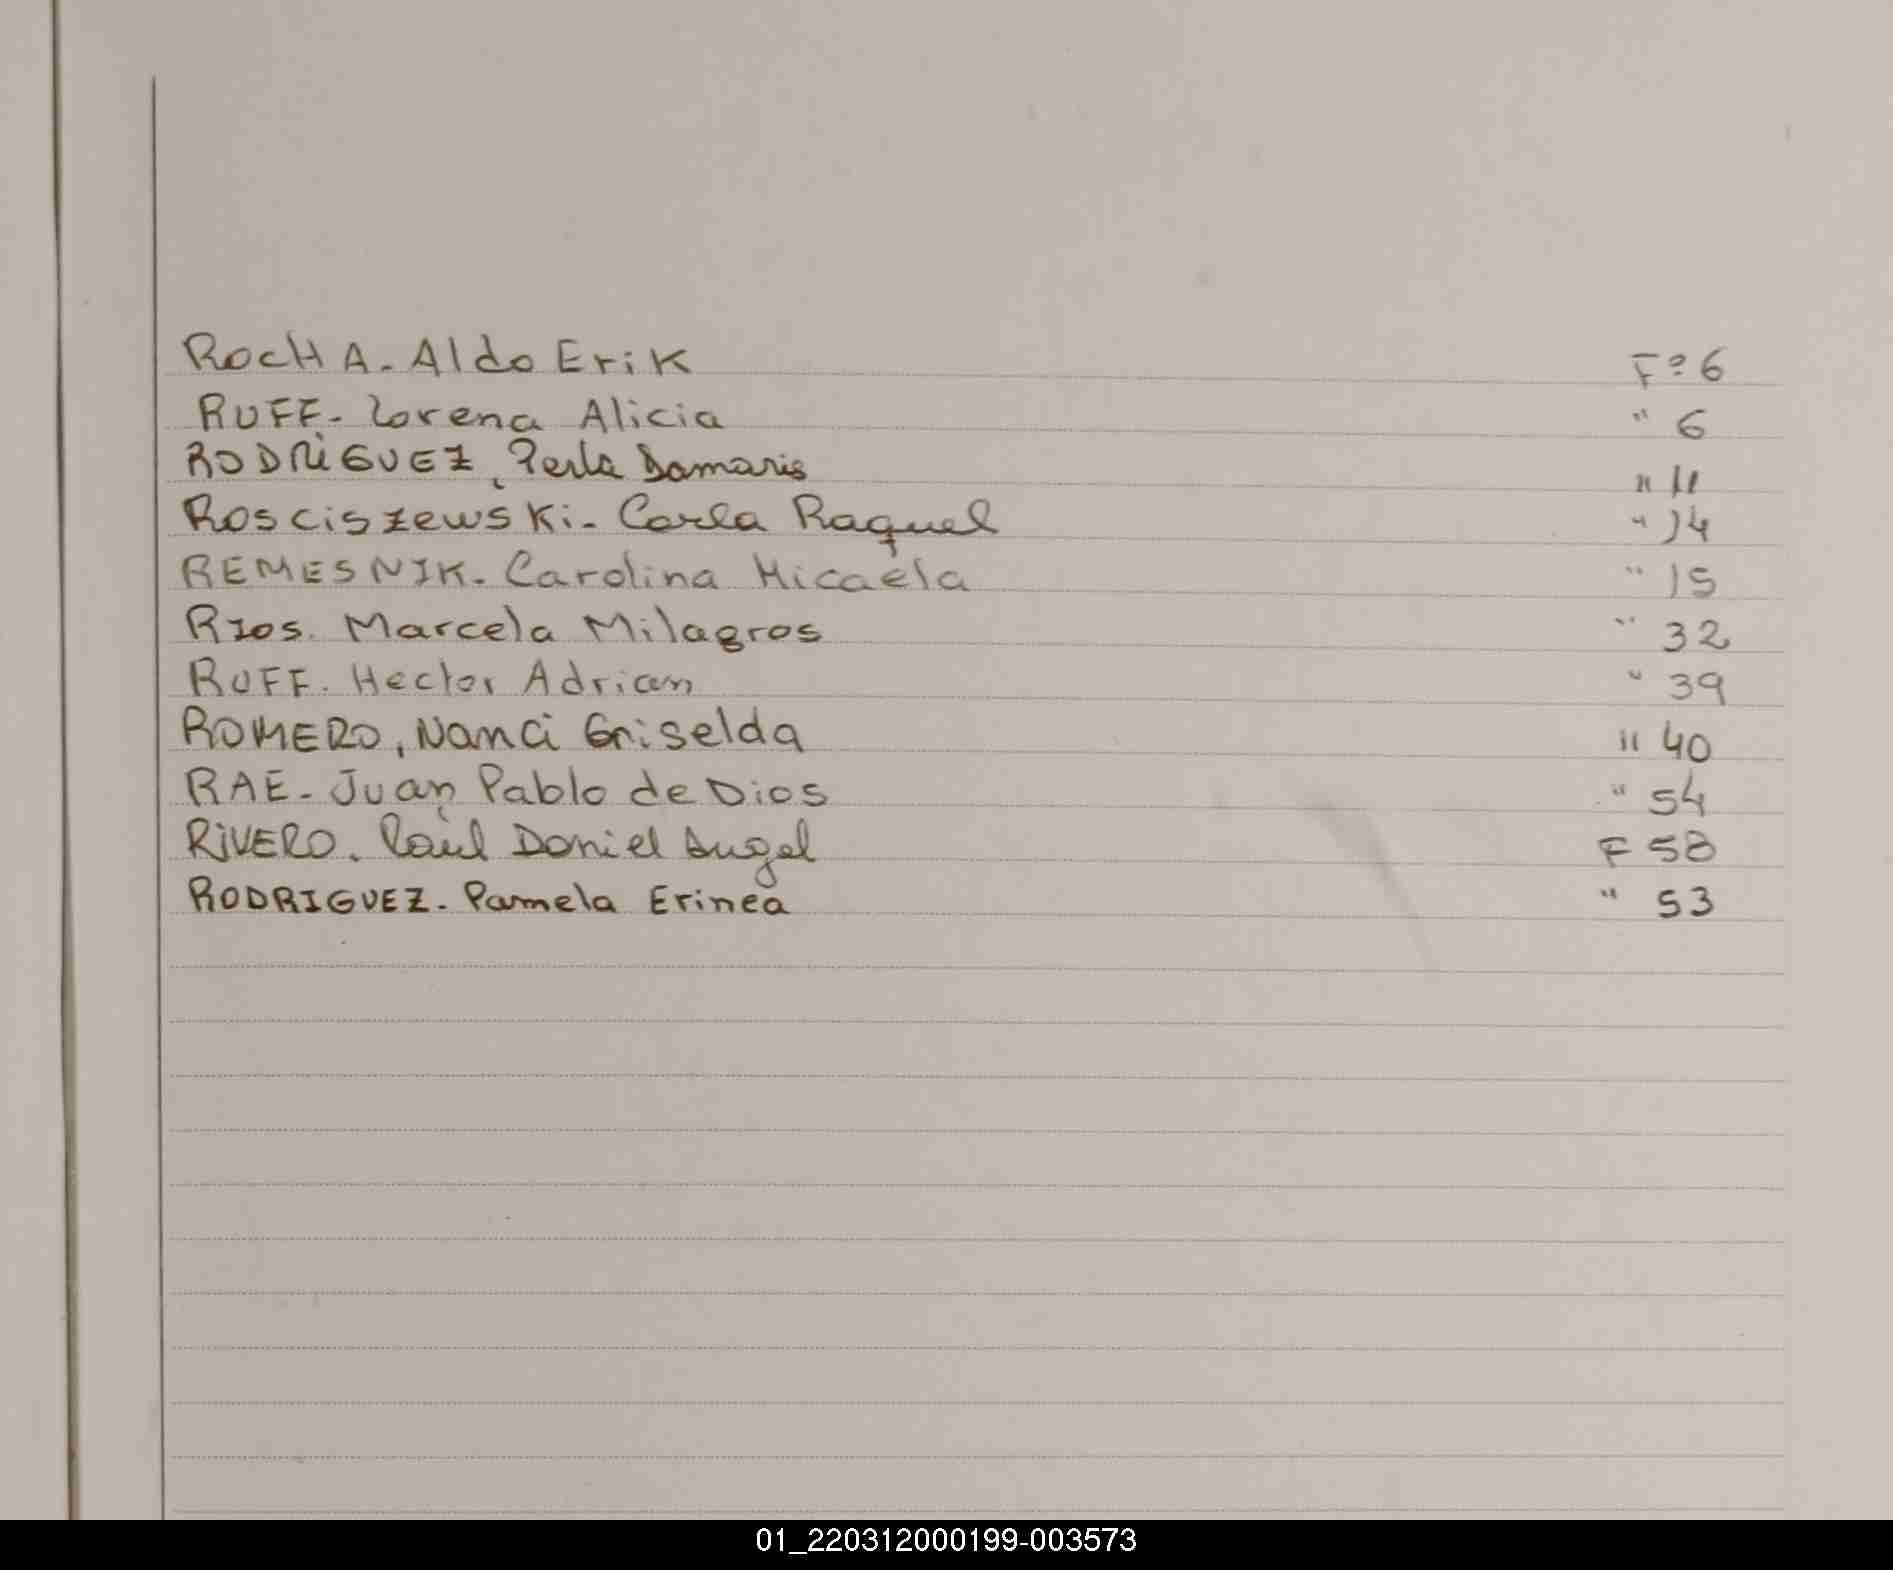 ROCHA. Aldo Erik F° 6
RUFF. Lorena Alicia " 6
RODRiGUEZ, Perla Damaris " 11
Rosciszewski. Carla Raquel " 14
REMESNIK. Carolina Micaela " 15
RIos. Marcela Milagros " 32
RUFF. Hector Adrian " 39
ROMERO, Nanci Griselda " 40
RAE. Juan Pablo de Dios " 54
RiVERO. Raúl Daniel Angel F 58
RODRIGUEZ. Pamela Erinea " 53
01_220312000199-003573